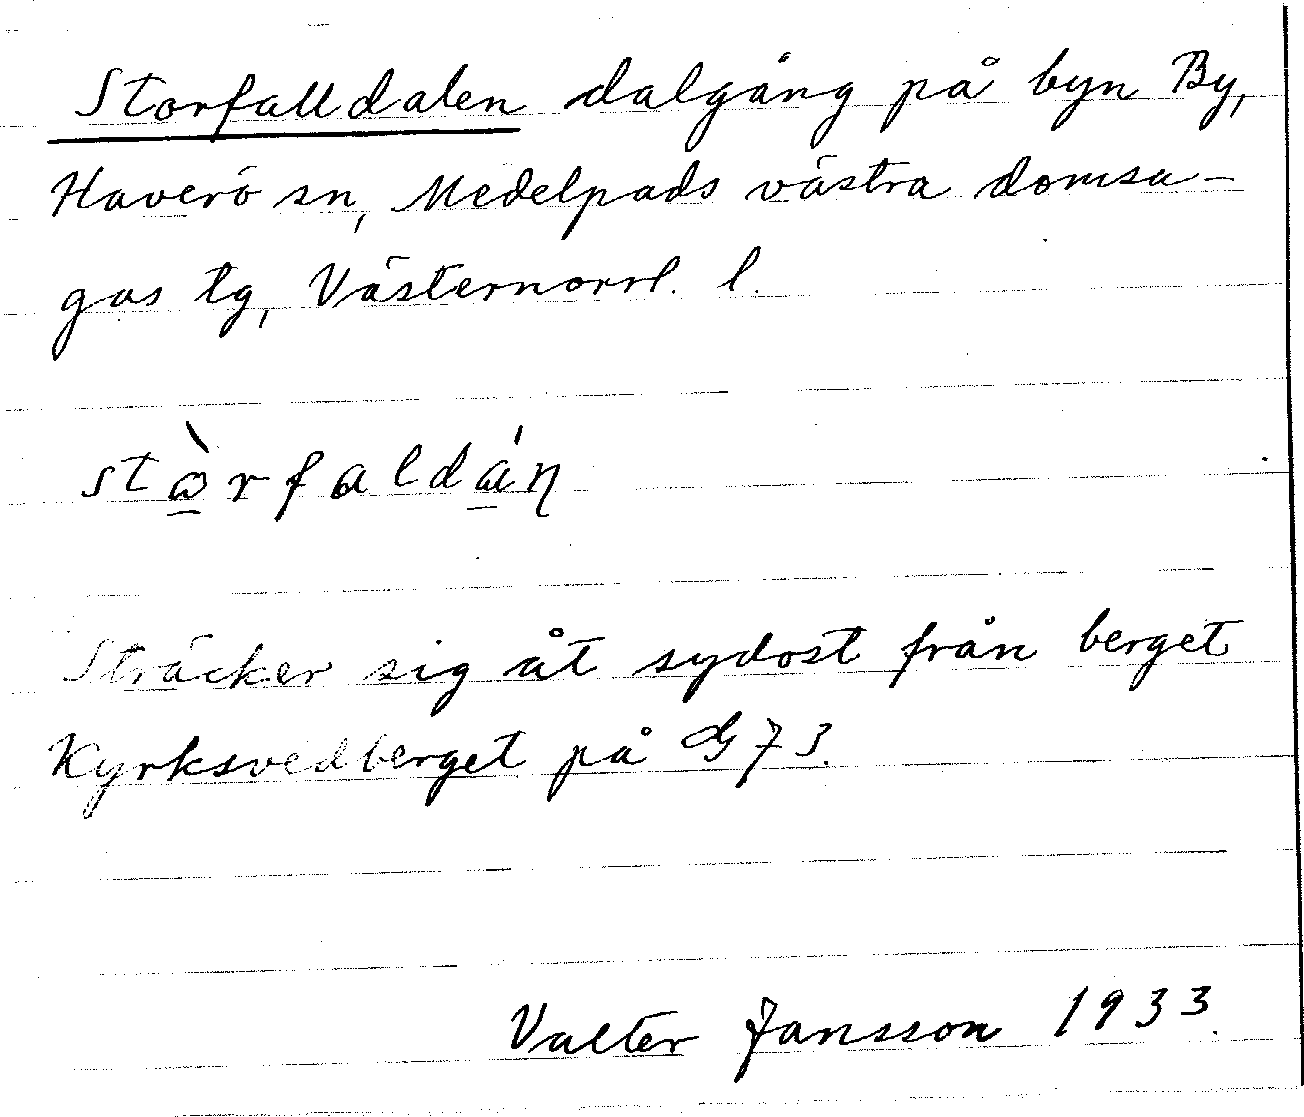 Storfalldalen dalgång på byn By,
Haverö sn, Medelpads västra domsa-
gas tg, Västernorrl. l.
stɷ̀rfaldán
Sträcker sig åt sydost från berget
Kyrksvedberget på G 73.
Valter Jansson 1933.